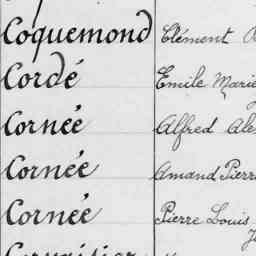 Coquemond Clément
Cordé Emile Marie
Cornée Alfred Ale
Cornée Amand Pierre
Cornée Pierre Louis